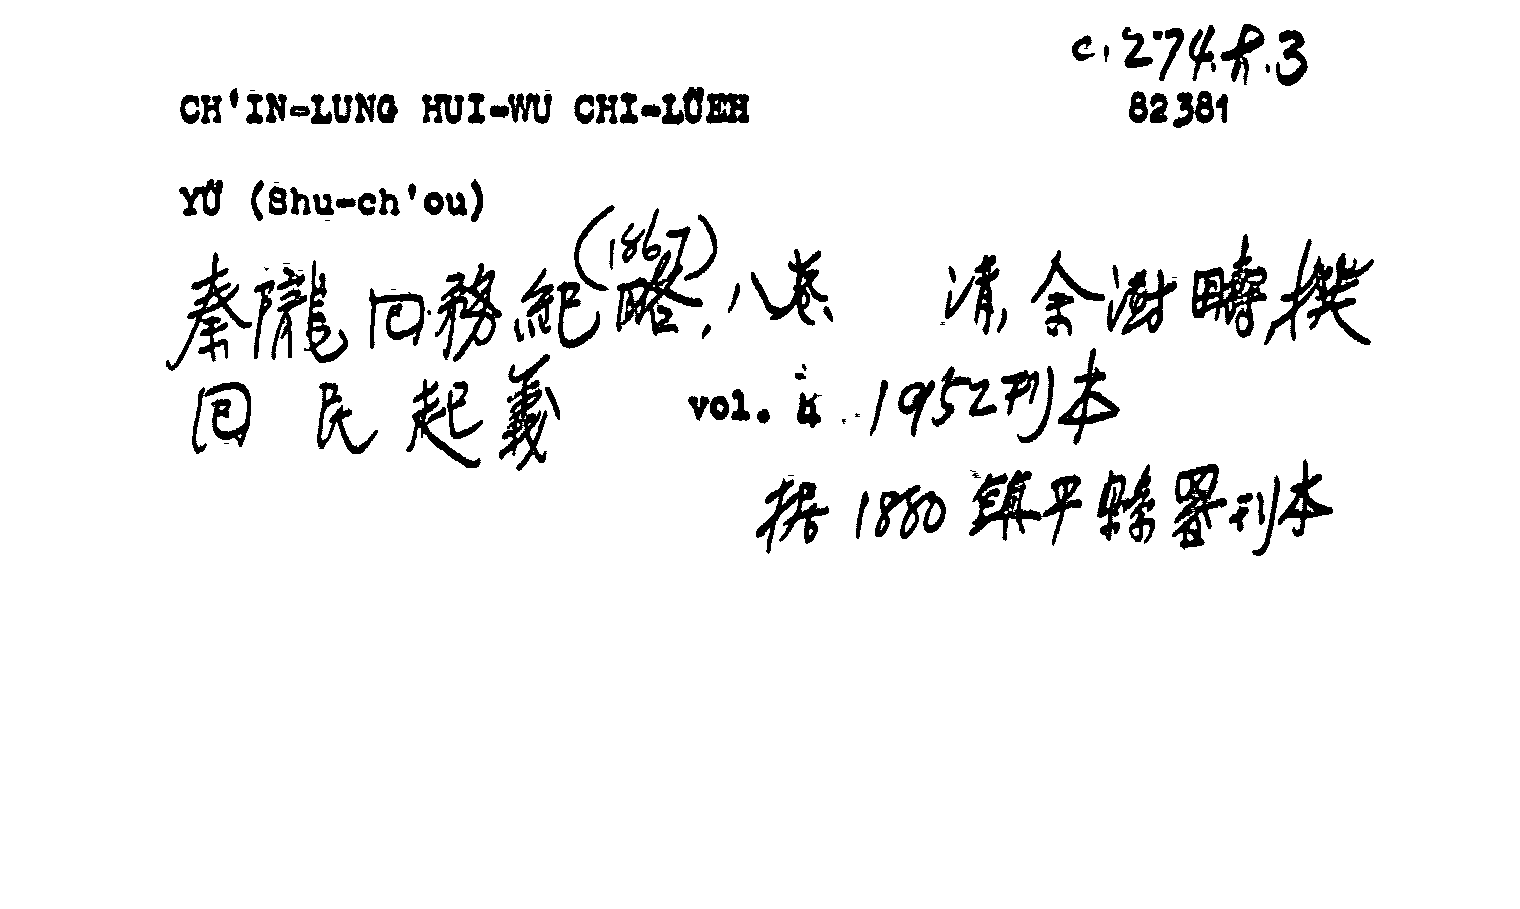 c.274.g.3
CH'IN-LUNG HUI-WU CHI-LÜEH 82381
YÜ (Shu-ch'ou)
(1867)
秦隴回務紀略, 八卷. 清, 余澍疇, 撰
回民起義 vol. 4 1952刊本
据 1880 鎮平縣署刊本